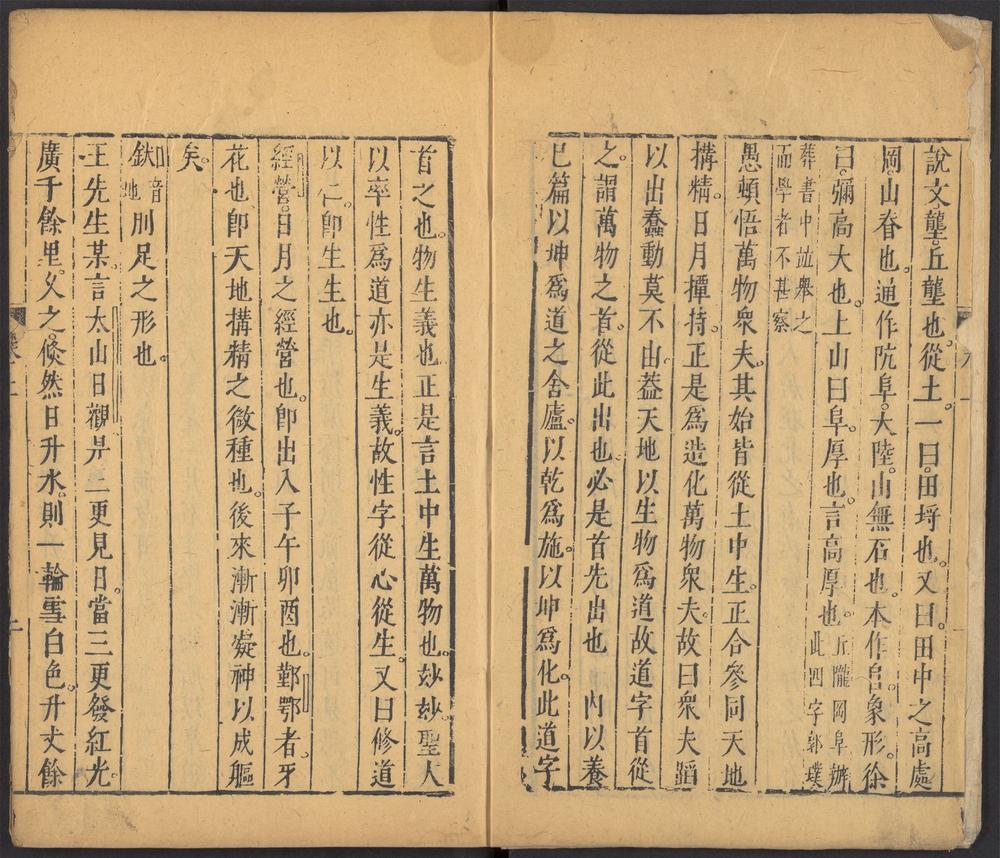 說文壟。丘壟也。從土。一曰。田埓也。又曰。田中之高處
岡。山脊也。通作阬阜。大陸。山無石也。本作𨸏。象形。徐
曰。彌高大也。上山曰阜。厚也。言高厚也。丘隴岡阜辦此四字郭璞
葬書中並舉之而學者不甚察
愚頓悟萬物衆夫。其始皆從土中生。正合參同天地
構精。日月撢持。正是爲造化萬物衆夫。故曰衆夫蹈
以出蠢動莫不由。葢天地以生物爲道故道字首從
之。謂萬物之首。從此出也。必是首先出也 內以養
巳篇以坤爲道之舍廬。以乾爲施。以坤爲化。此道字
首之也。物生義也。正是言土中生萬物也。妙妙。聖人
以率性爲道亦是生義。故性字從心從生。又曰修道
以仁。卽生生也。
經營。日月之經營也。卽出入子午卯酉也。鄞鄂者。牙
花也卽天地構精之微種也。後來漸漸凝神以成軀
矣。
釱音地刖足之形也。
王先生某。言太山日觀。早二更見日。當三更發紅光。
廣千餘里。乂之。倏然日升水。則一輪雪白色。升丈餘